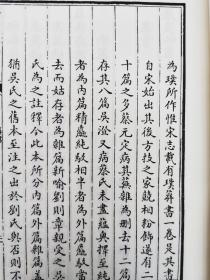 為璞所作惟宋志載有璞葬書一卷是其書
自宋始出其後方技之家競相粉飾遂有二
十篇之多蔡元定病其蕪雜為刪去十二篇
存其八篇吳澄又病蔡氏未盡蘊奧擇至純
者為內篇精粗純駁相半者為外篇粗駁當
去而姑存者為雜篇新喻劉則章親受之吳
氏為之註釋今此本所分內篇外篇雜篇蓋
猶吳氏之舊本至注之出於劉氏與否則不